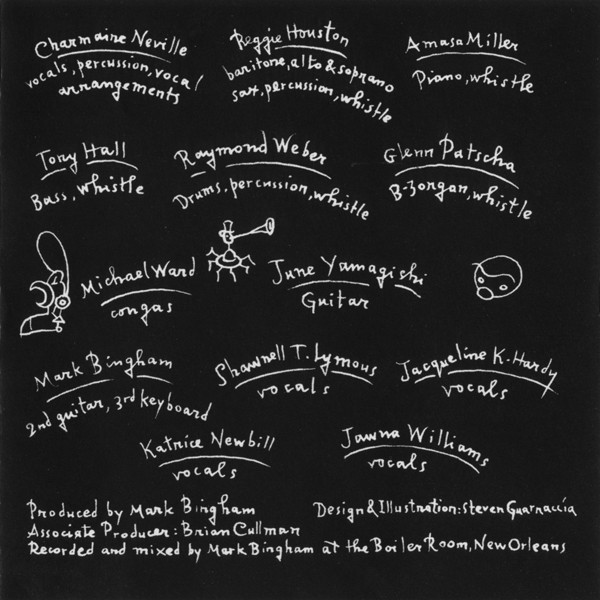 Charmaine Neville
vocals, percussion, vocal
arrangements
Reggie Houston
baritone, alto & soprano
sax, percussion, whistle
Amasa Miller
Piano, whistle
Tony Hall
Bass, whistle
Raymond Weber
Drums, percussion, whistle
Glenn Patscha
B-3 organ, whistle
Michael Ward
congas
June Yamagishi
Guitar
Mark Bingham
2nd guitar, 3rd keyboard
Shawnell T. Lymous
vocals
Jacqueline K-Hardy
vocals
Katrice Newbill
vocals
Jawna Williams
vocals
Produced by Mark Bingham
Design & Illustration: Steven Guarnaccia
Associate Producer: Brian Cullman
Recorded and mixed by Mark Bingham at the Boiler Room, New Orleans